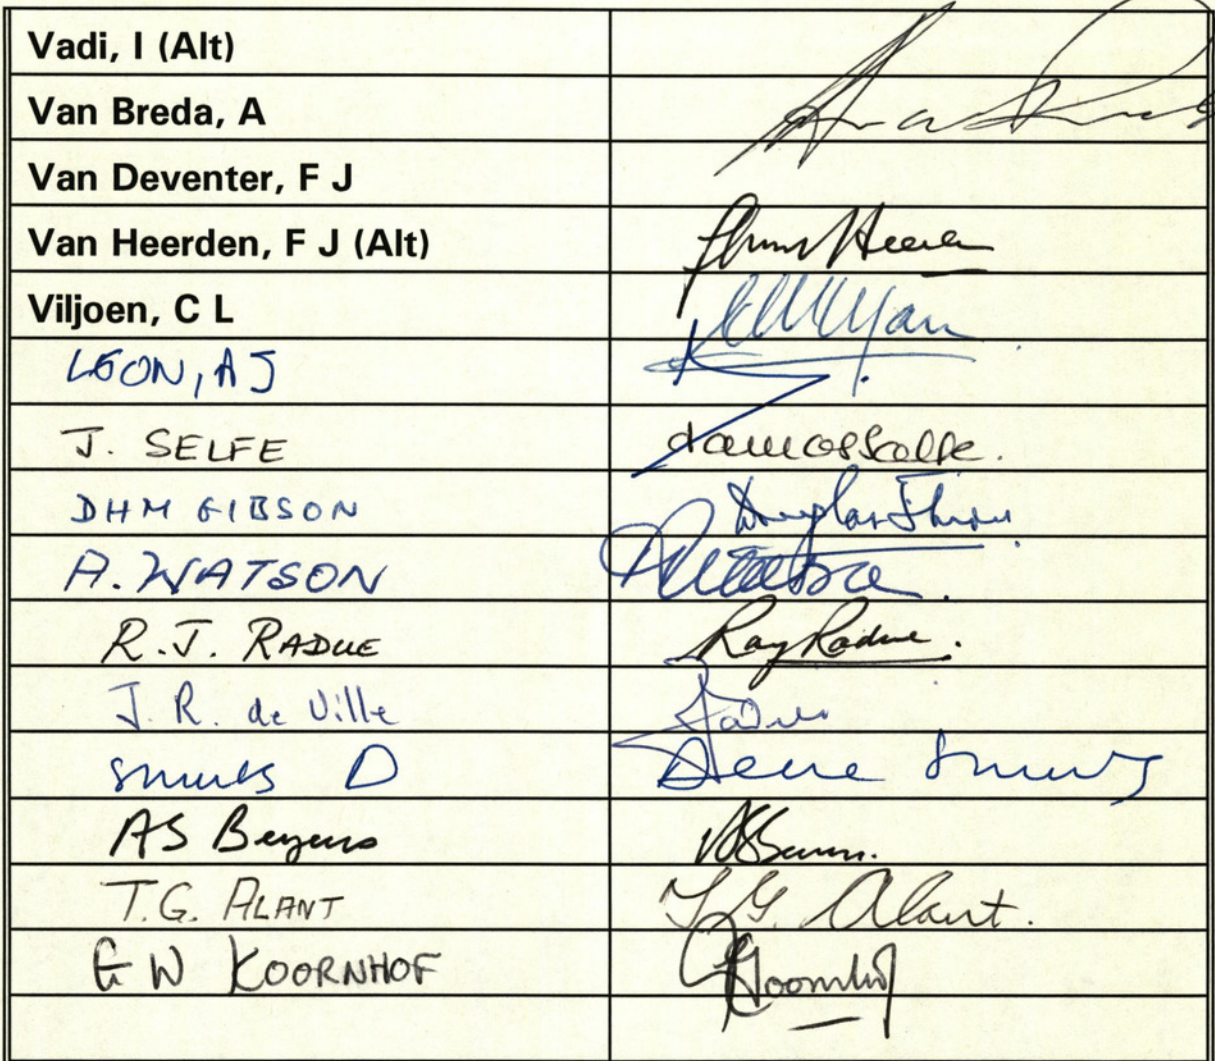 Vadi, I (Alt)
Van Breda, A
Van Deventer, F J
Van Heerden, F J (Alt)
Viljoen, C L
LEON, AJ
J. SELFE James Selfe.
DHM GIBSON Douglas Gibson
A. WATSON AWatson.
R.J. RADUE Ray Radue.
J. R. de Ville
Smuts D Dene Smuts
AS Beyers
T.G. ALANT T G. Alant.
G W KOORNHOF GKoornhof